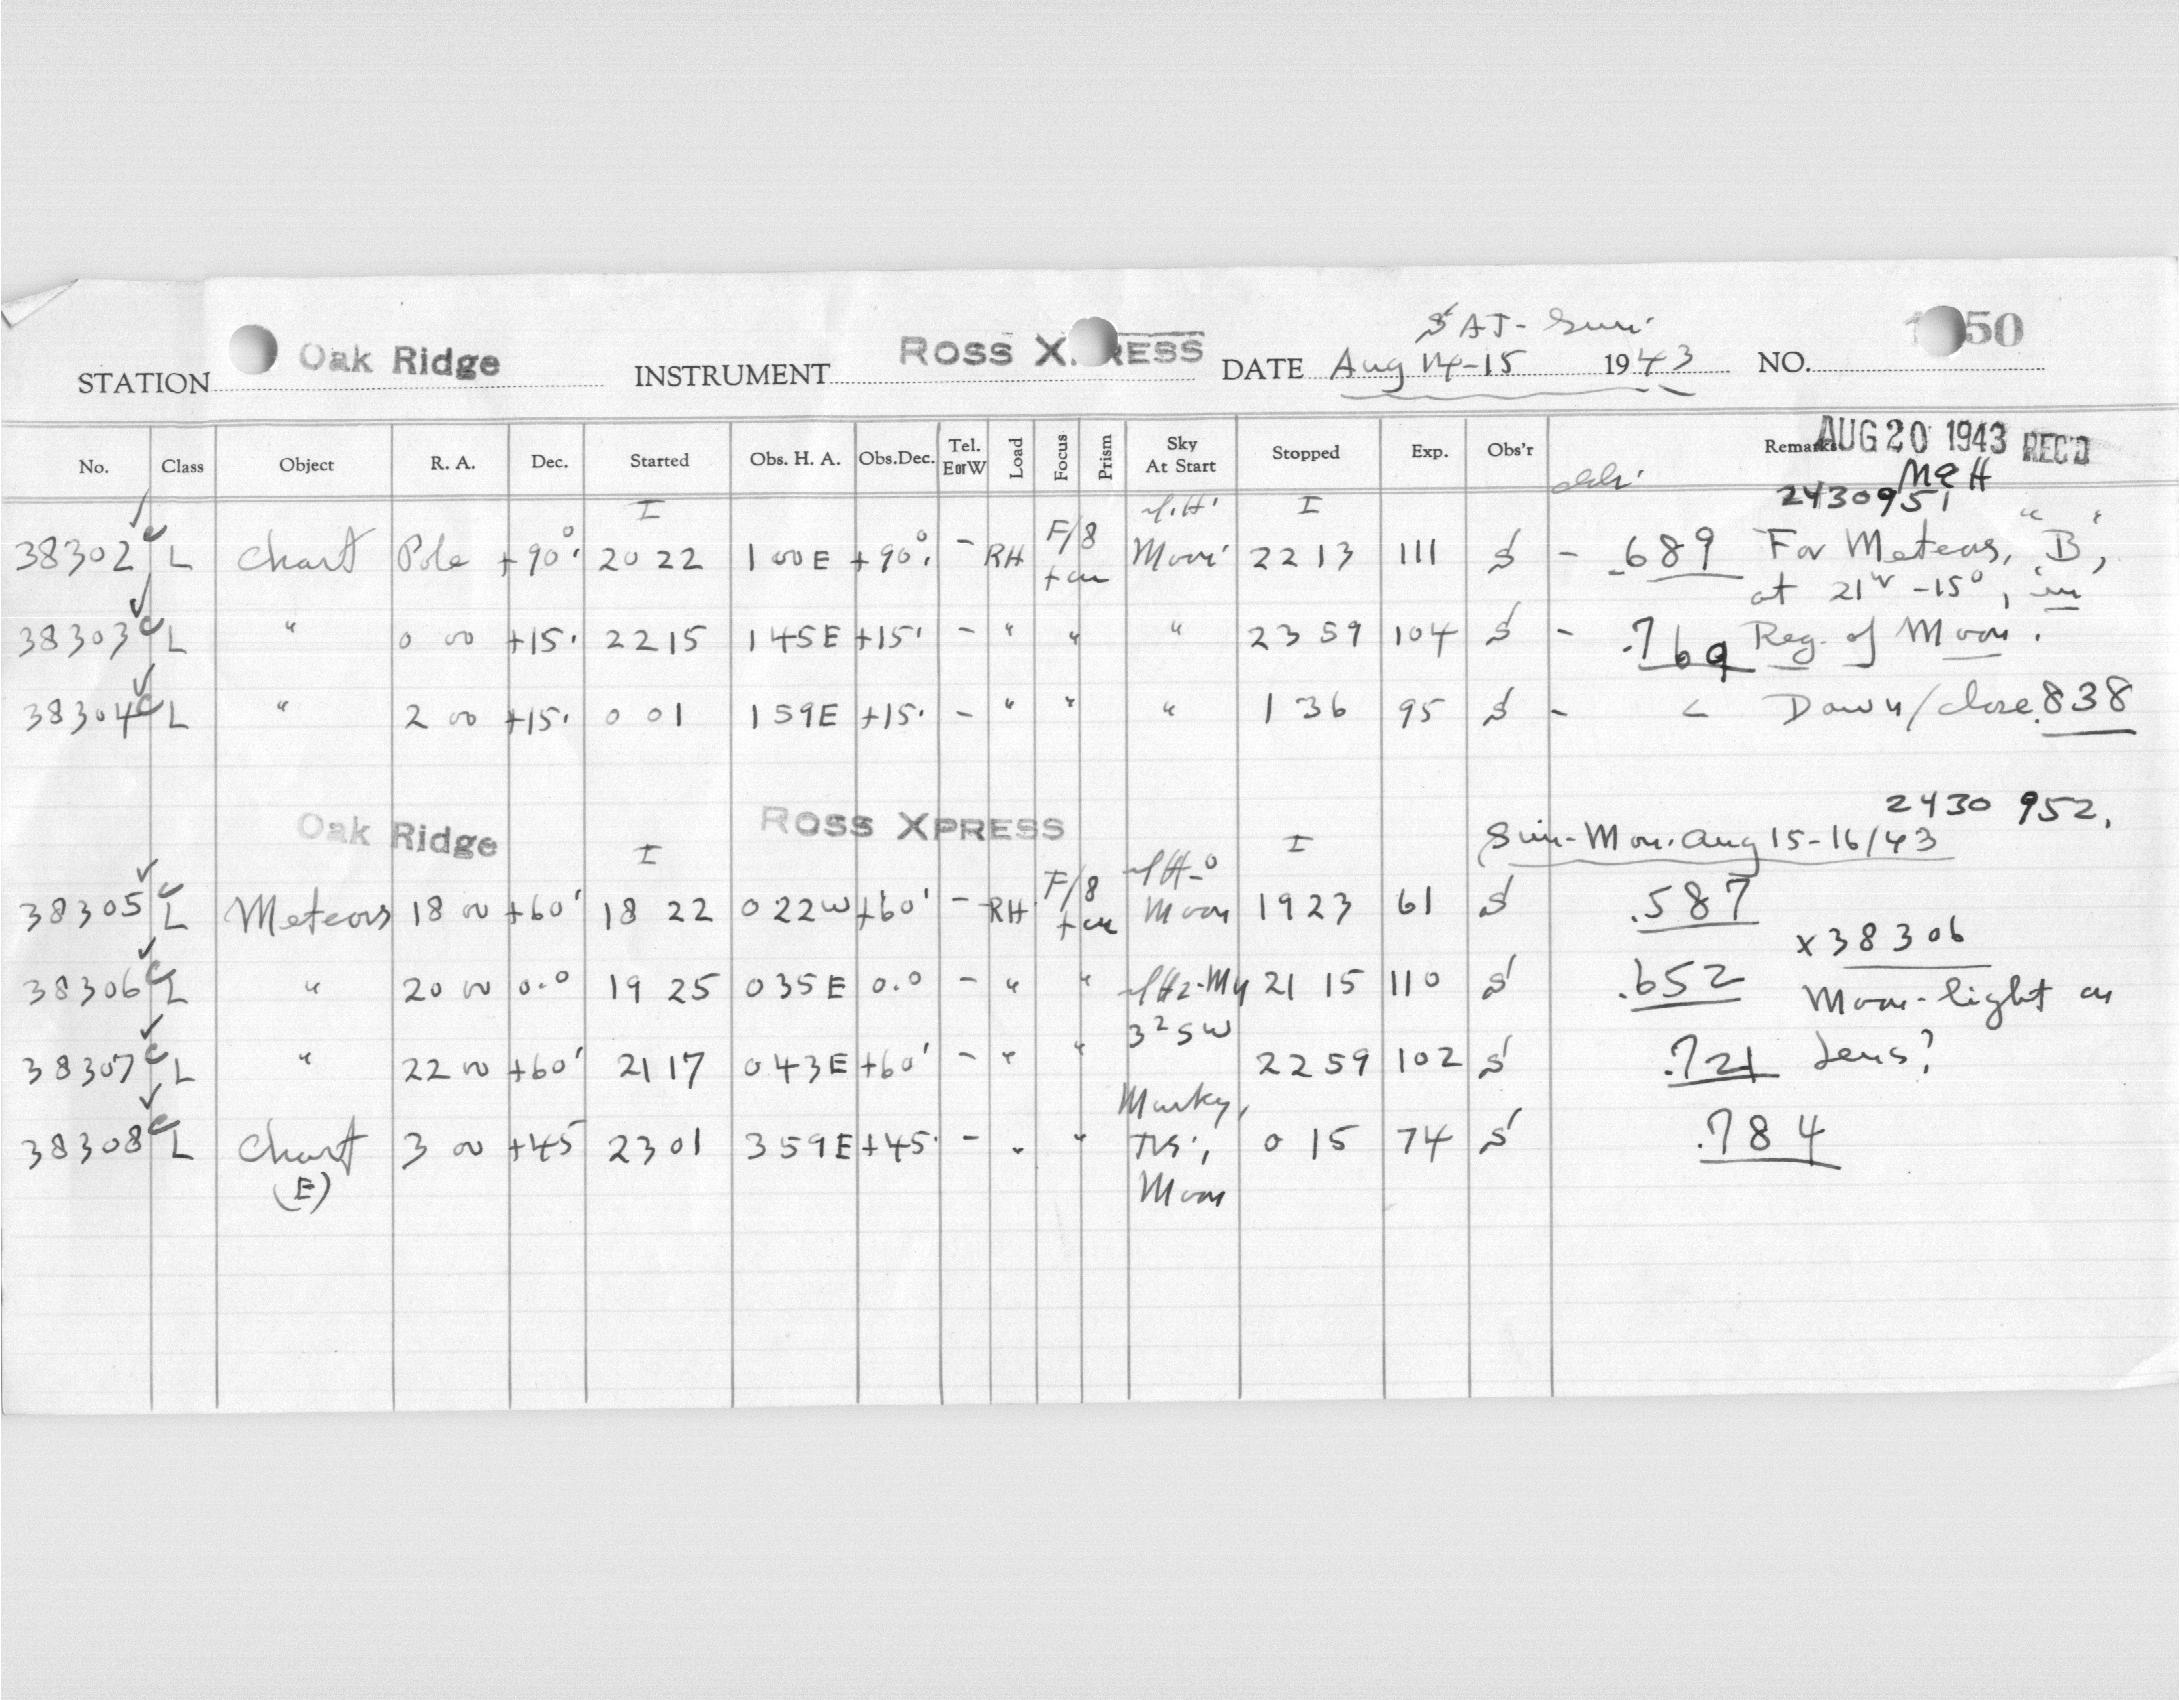 SAT-Sun.
STATION Oak Ridge INSTRUMENT ROSS X RESS DATE Aug 14-15 1943 NO. 50
No. Class Object R. A. Dec. Started Obs. H. A. Obs.Dec. Tel. E or W Load Focus Prism Sky At Start Stopped Exp. Obs'r Remarks
AUG 20 1943 REC'D
I I 2430951
38302 L Chart Pole +90° 20 22 1 00 E +90° - RH F/8 Moon 22 13 111 S - .689 For Meteors, "B",
at 21hr -15°, in
38303 L " 0 00 +15 22 15 1 45 E +15 - " " " 23 59 104 S - .769 Reg. of Moon.
38304 L " 2 00 +15 0 01 1 59 E +15 - " " " 1 36 95 S - < Dawn/close .838
2430 952.
Oak Ridge ROSS XPRESS Sun-Mon. Aug 15-16/43
I I
38305 L Meteors 18 00 +60 18 22 0 22 W +60 - RH F/8 Moon 19 23 61 S .587
x 38306
38306 L " 20 00 0.0 19 25 0 35 E 0.0 - " " 21 15 110 S .652 Moon-light on
38307 L " 22 00 +60 21 17 0 43 E +60 - " " 22 59 102 S .721 lens?
38308 L Chart 3 00 +45 23 01 3 59 E +45 - " " Murky, Moon 0 15 74 S .784
(E)